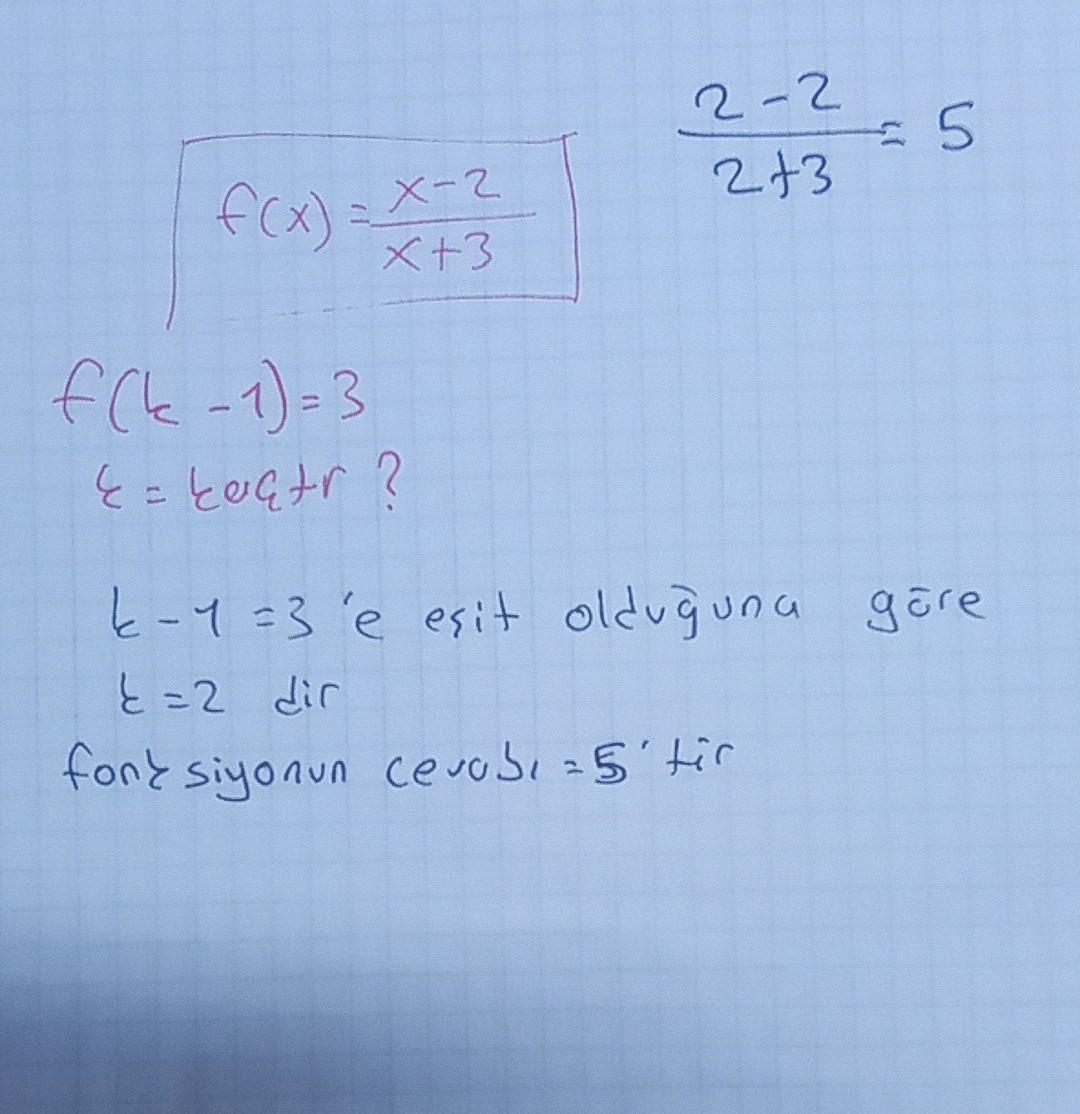 f(x) = x-2 / x+3
2-2 / 2+3 = 5
f(k -1) = 3
k = kaçtr ?
k-1 = 3 'e eşit olduğuna göre
k = 2 dir
fonksiyonun cevabı = 5 'tir